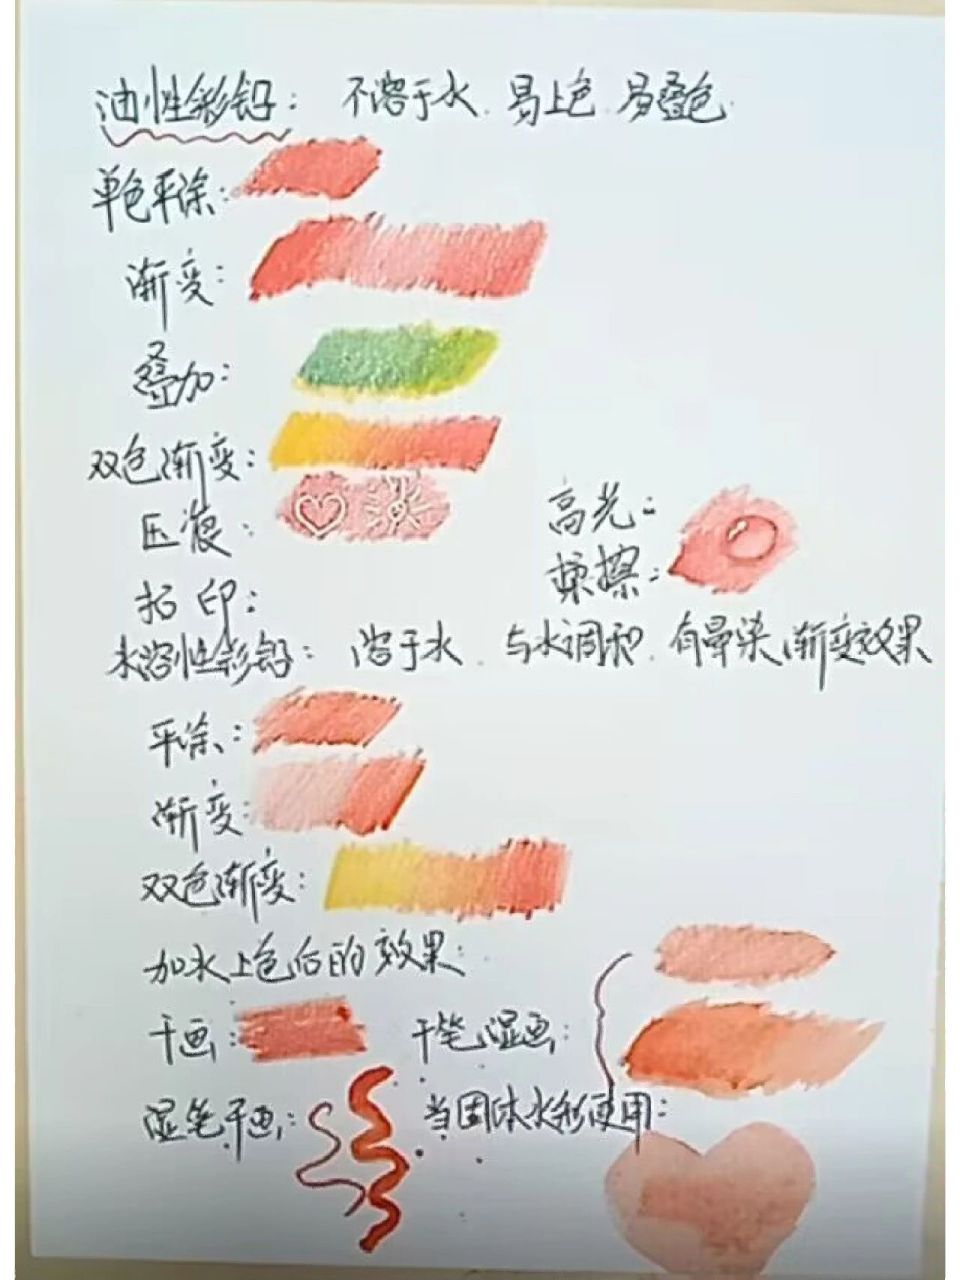 油性彩铅： 不溶于水. 易上色. 易叠色.
单色平涂：
渐变：
叠加：
双色渐变：
压痕：
高光：
揉擦：
拓印：
水溶性彩铅： 溶于水. 与水调和. 有晕染,渐变效果
平涂：
渐变：
双色渐变：
加水上色后的效果：
干画： 干笔湿画：
湿笔干画： 当固体水彩使用：